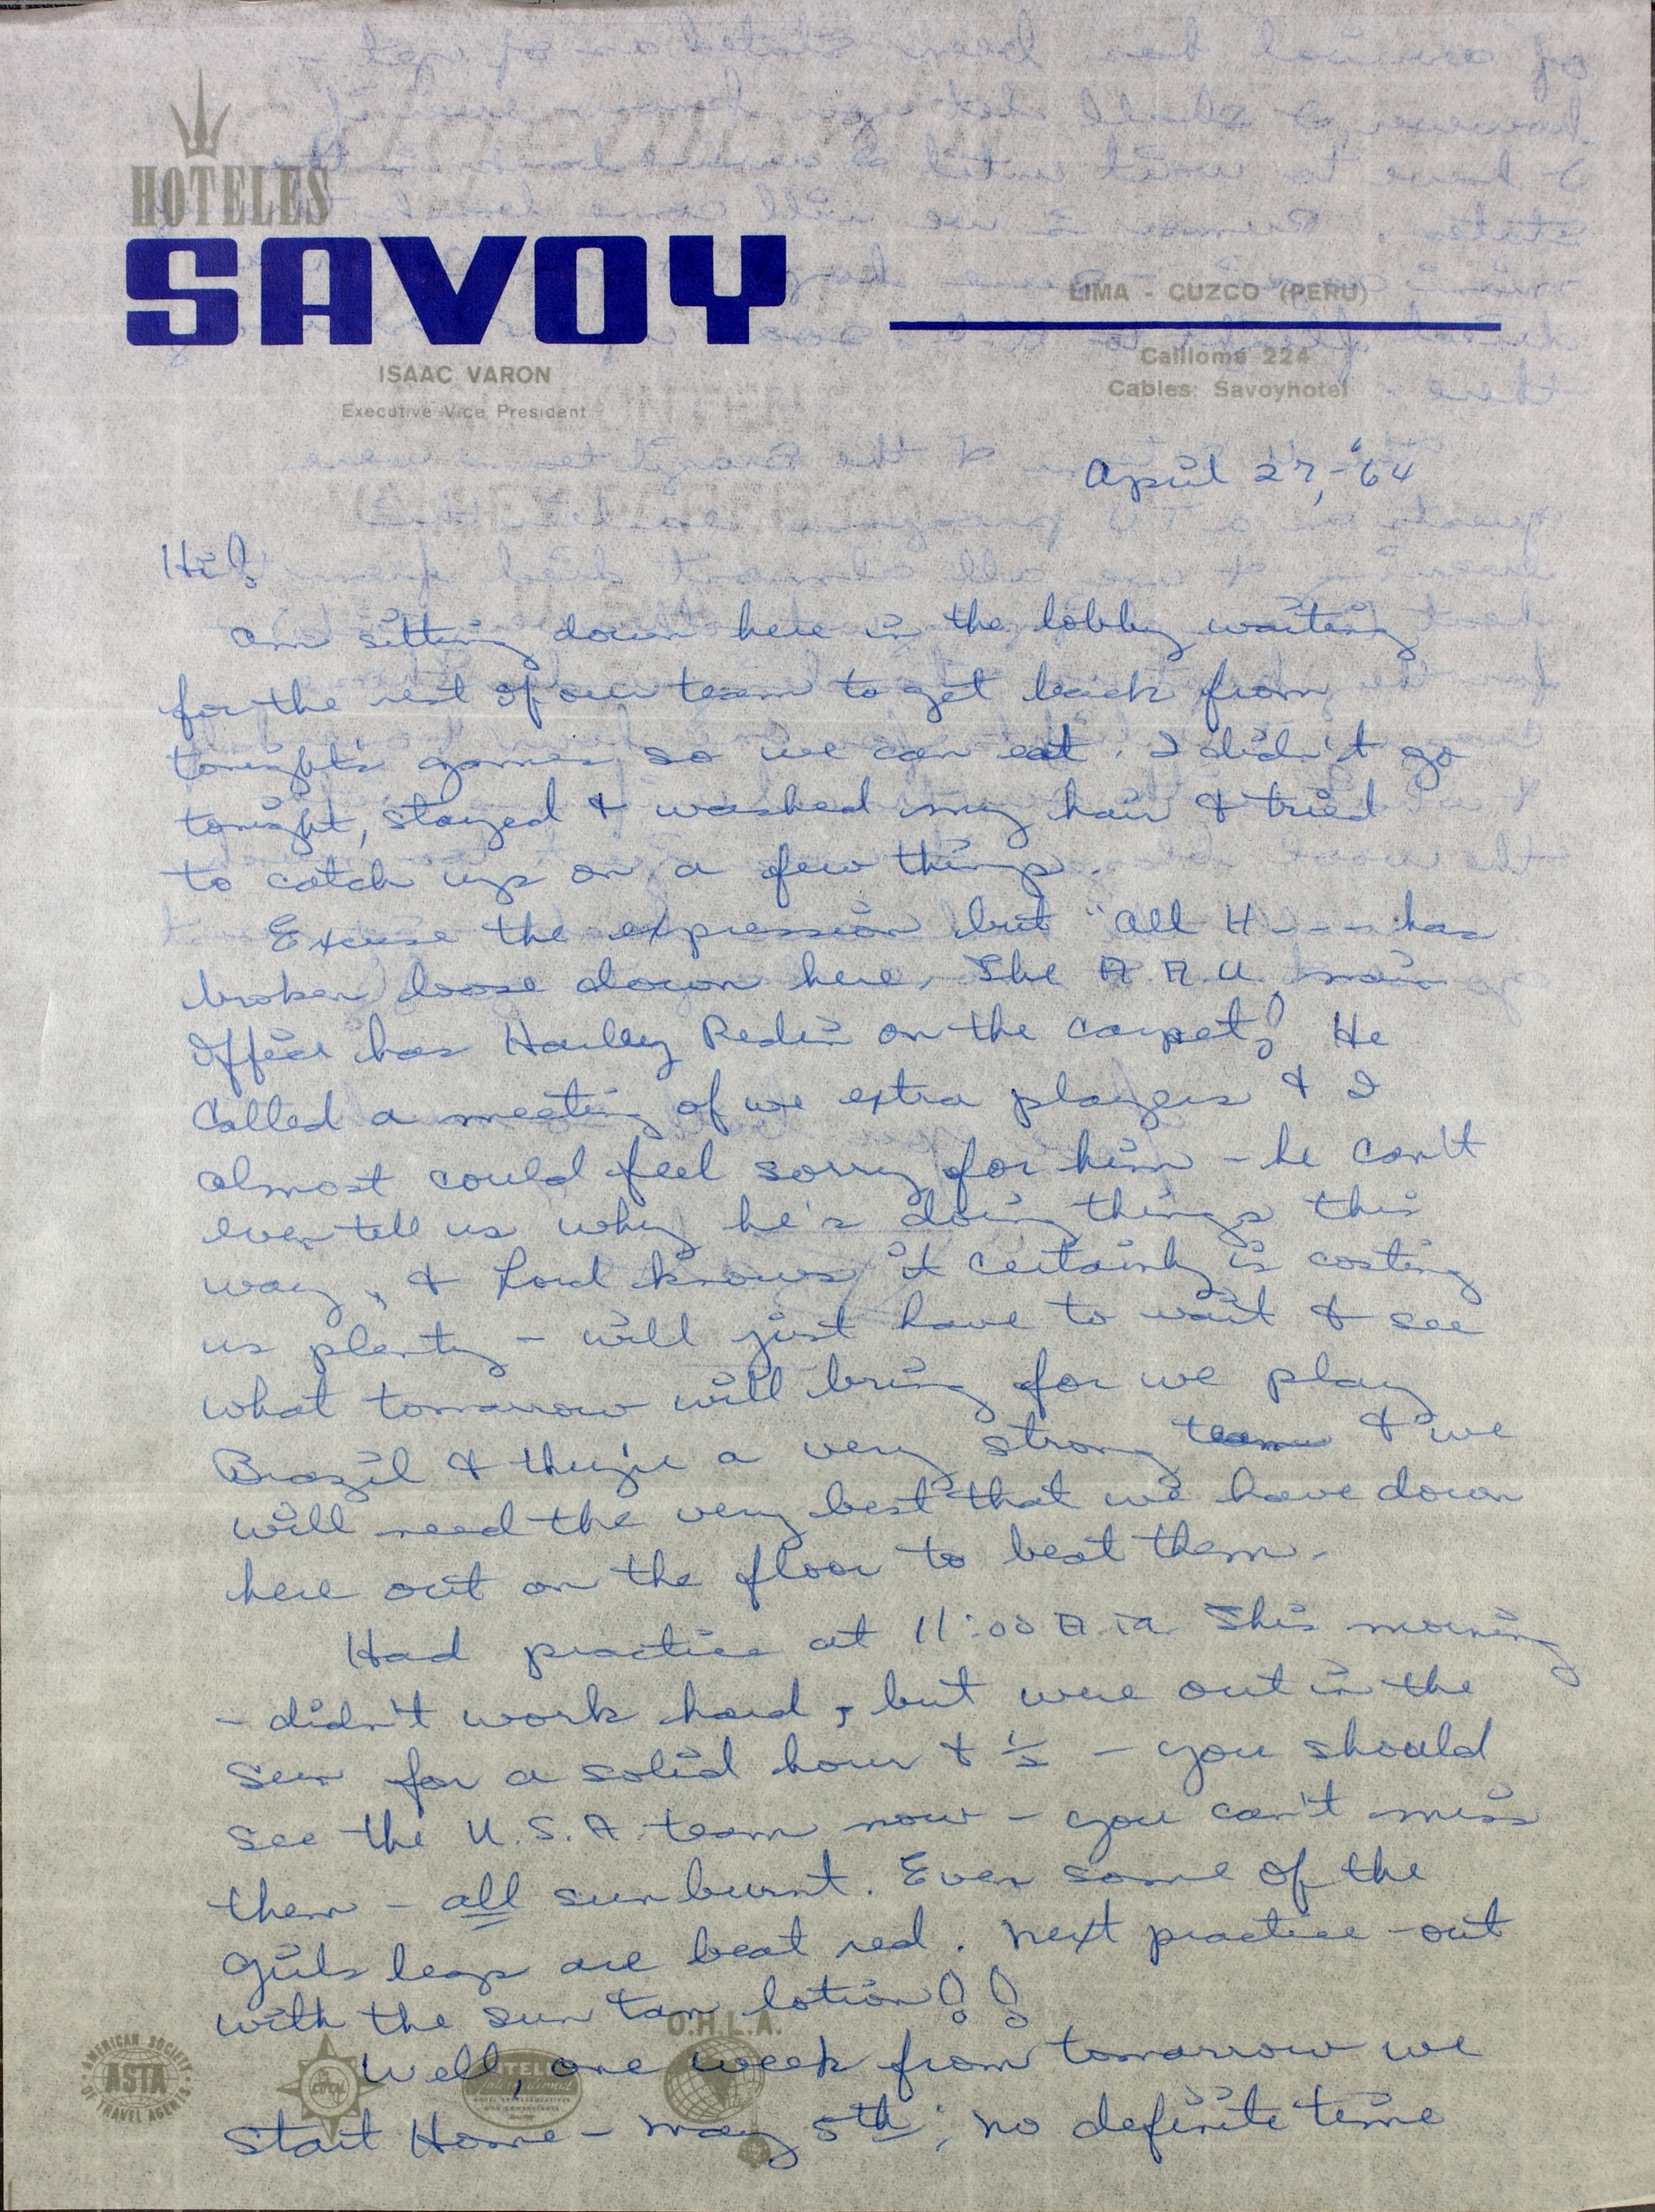 HOTELES
SAVOY
LIMA - CUZCO (PERU)
Cailloma 224
Cables: Savoyhotel
ISAAC VARON
Executive Vice President
April 27, - '64
Hi!
Am sitting down here in the lobby waiting
for the rest of our team to get back from
tonight's games so we can eat. I didn't go
tonight, stayed & washed my hair & tried
to catch up on a few things.
Excuse the expression but "All H - - - has
broken loose down here. The A.A.U. main
office has Harley Redin on the carpet! He
called a meeting of we extra players & I
almost could feel sorry for him - he can't
even tell us why he's doing things this
way, & Lord knows it certainly is costing
us plenty - will just have to wait & see
what tomorrow will bring for we play
Brazil & they're a very strong team & we
will need the very best that we have down
here out on the floor to beat them.
Had practice at 11:00 A.M. This morning
- didn't work hard, but were out in the
sun for a solid hour & 1/2 - you should
see the U.S.A. team now - you can't miss
them - all sunburnt. Even some of the
girls legs are beat red. Next practice - out
with the sun tan lotion!!
Well, one week from tomorrow we
start Home - May 5th; no definite time
AMERICAN SOCIETY
ASTA
OF TRAVEL AGENTS
O.H.L.A.